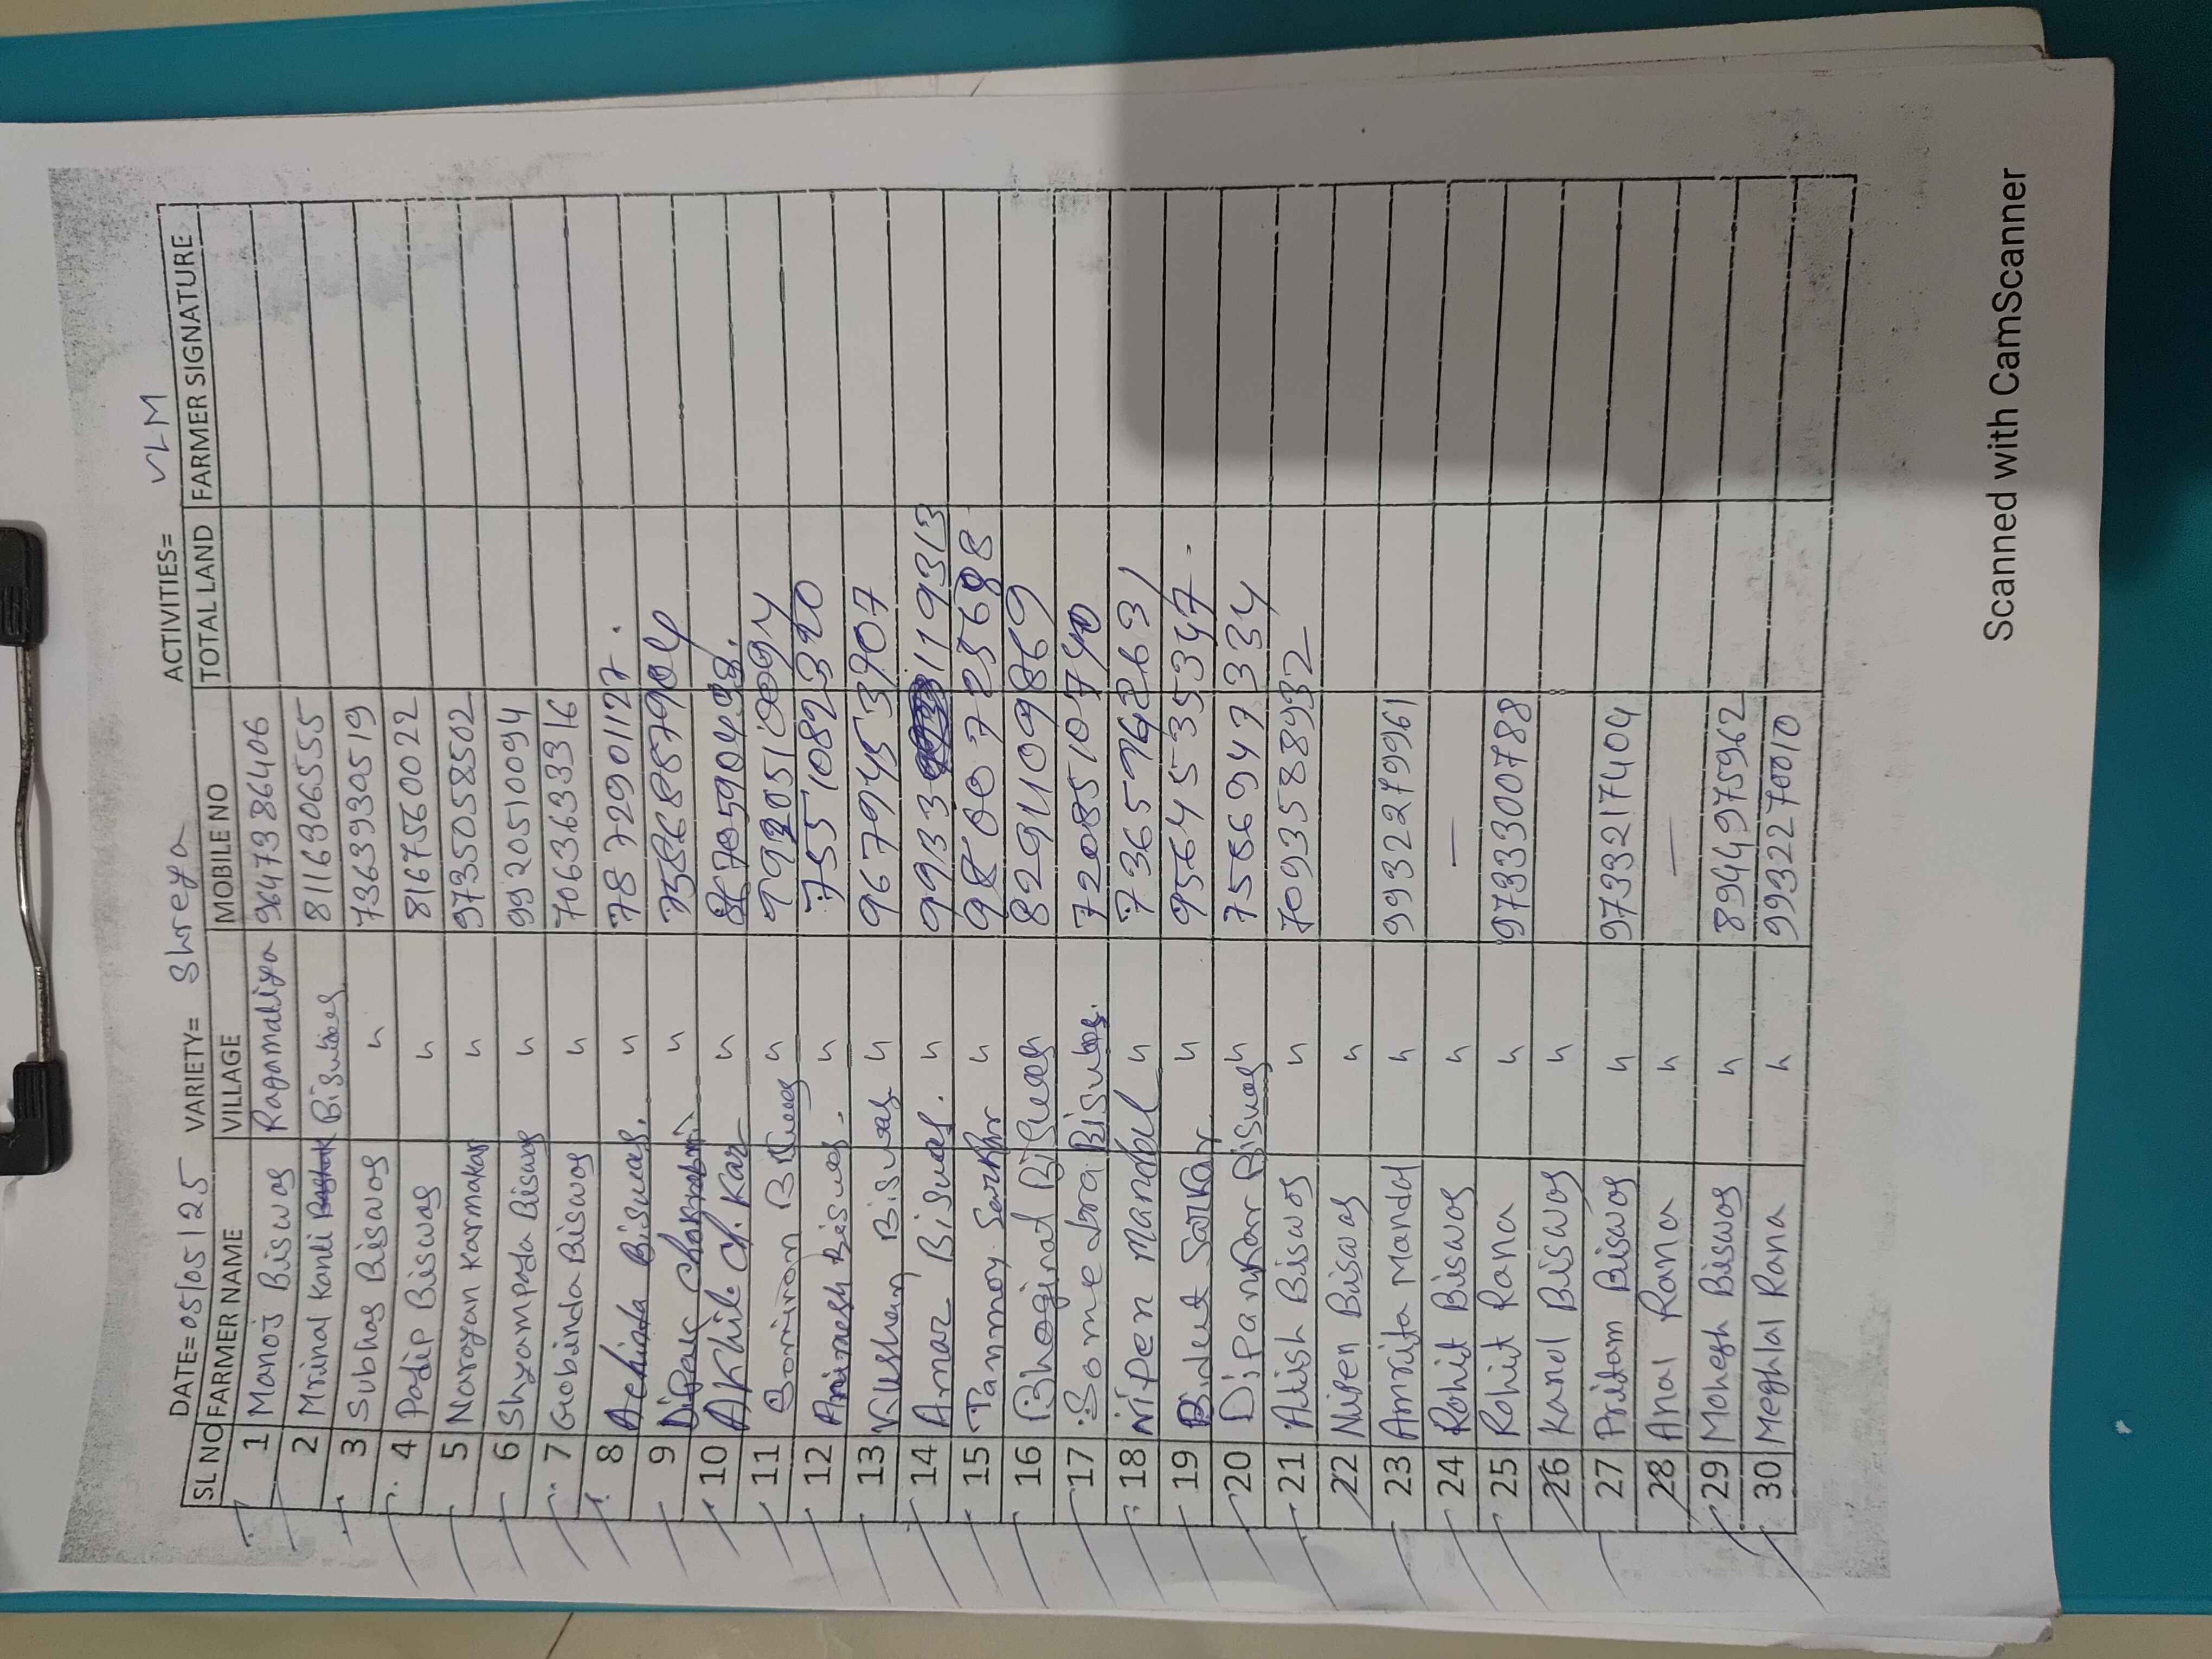 DATE= 05/05/25 VARIETY= Shreya ACTIVITIES= VLM
SL NO FARMER NAME VILLAGE MOBILE NO TOTAL LAND FARMER SIGNATURE
1 Manoj Biswas Ragamaliya 9647386406
2 Mrinal Kanti Biswas 8116306555
3 Subhas Biswas " 7363930519
4 Padip Biswas " 8167560022
5 Narayan Karmakar " 9735058502
6 Shyampada Biswas " 9920510094
7 Gobinda Biswas " 7063633316
8 Achinta Biswas. " 7872901127.
9 Dipak "
10 Akhil ch. Kar "
11 Biswas "
12 Animesh Biswas. " 7551082320
13 Kushan Biswas " 9679453907
14 Amar Biswas. " 99333 119313
15 Tanmoy Sarkar "
16 Bhogirat Biswas 8294109869
17 Biswas. 7208510740
18 Nipen Mandal "
19 Bidut Sarkar " 9564535347.
20 Dipankar Biswas " 7556947334
21 Ashish Biswas " 7093588932
22 Nipen Biswas "
23 Amrita Mandal " 9932279961
24 Rohit Biswas " —
25 Rohit Rana " 9733300788
26 Kamol Biswas "
27 Pritam Biswas " 9733217404
28 Amal Rana " —
29 Mohesh Biswas " 8944975962
30 Meghlal Rana " 9932270010
Scanned with CamScanner